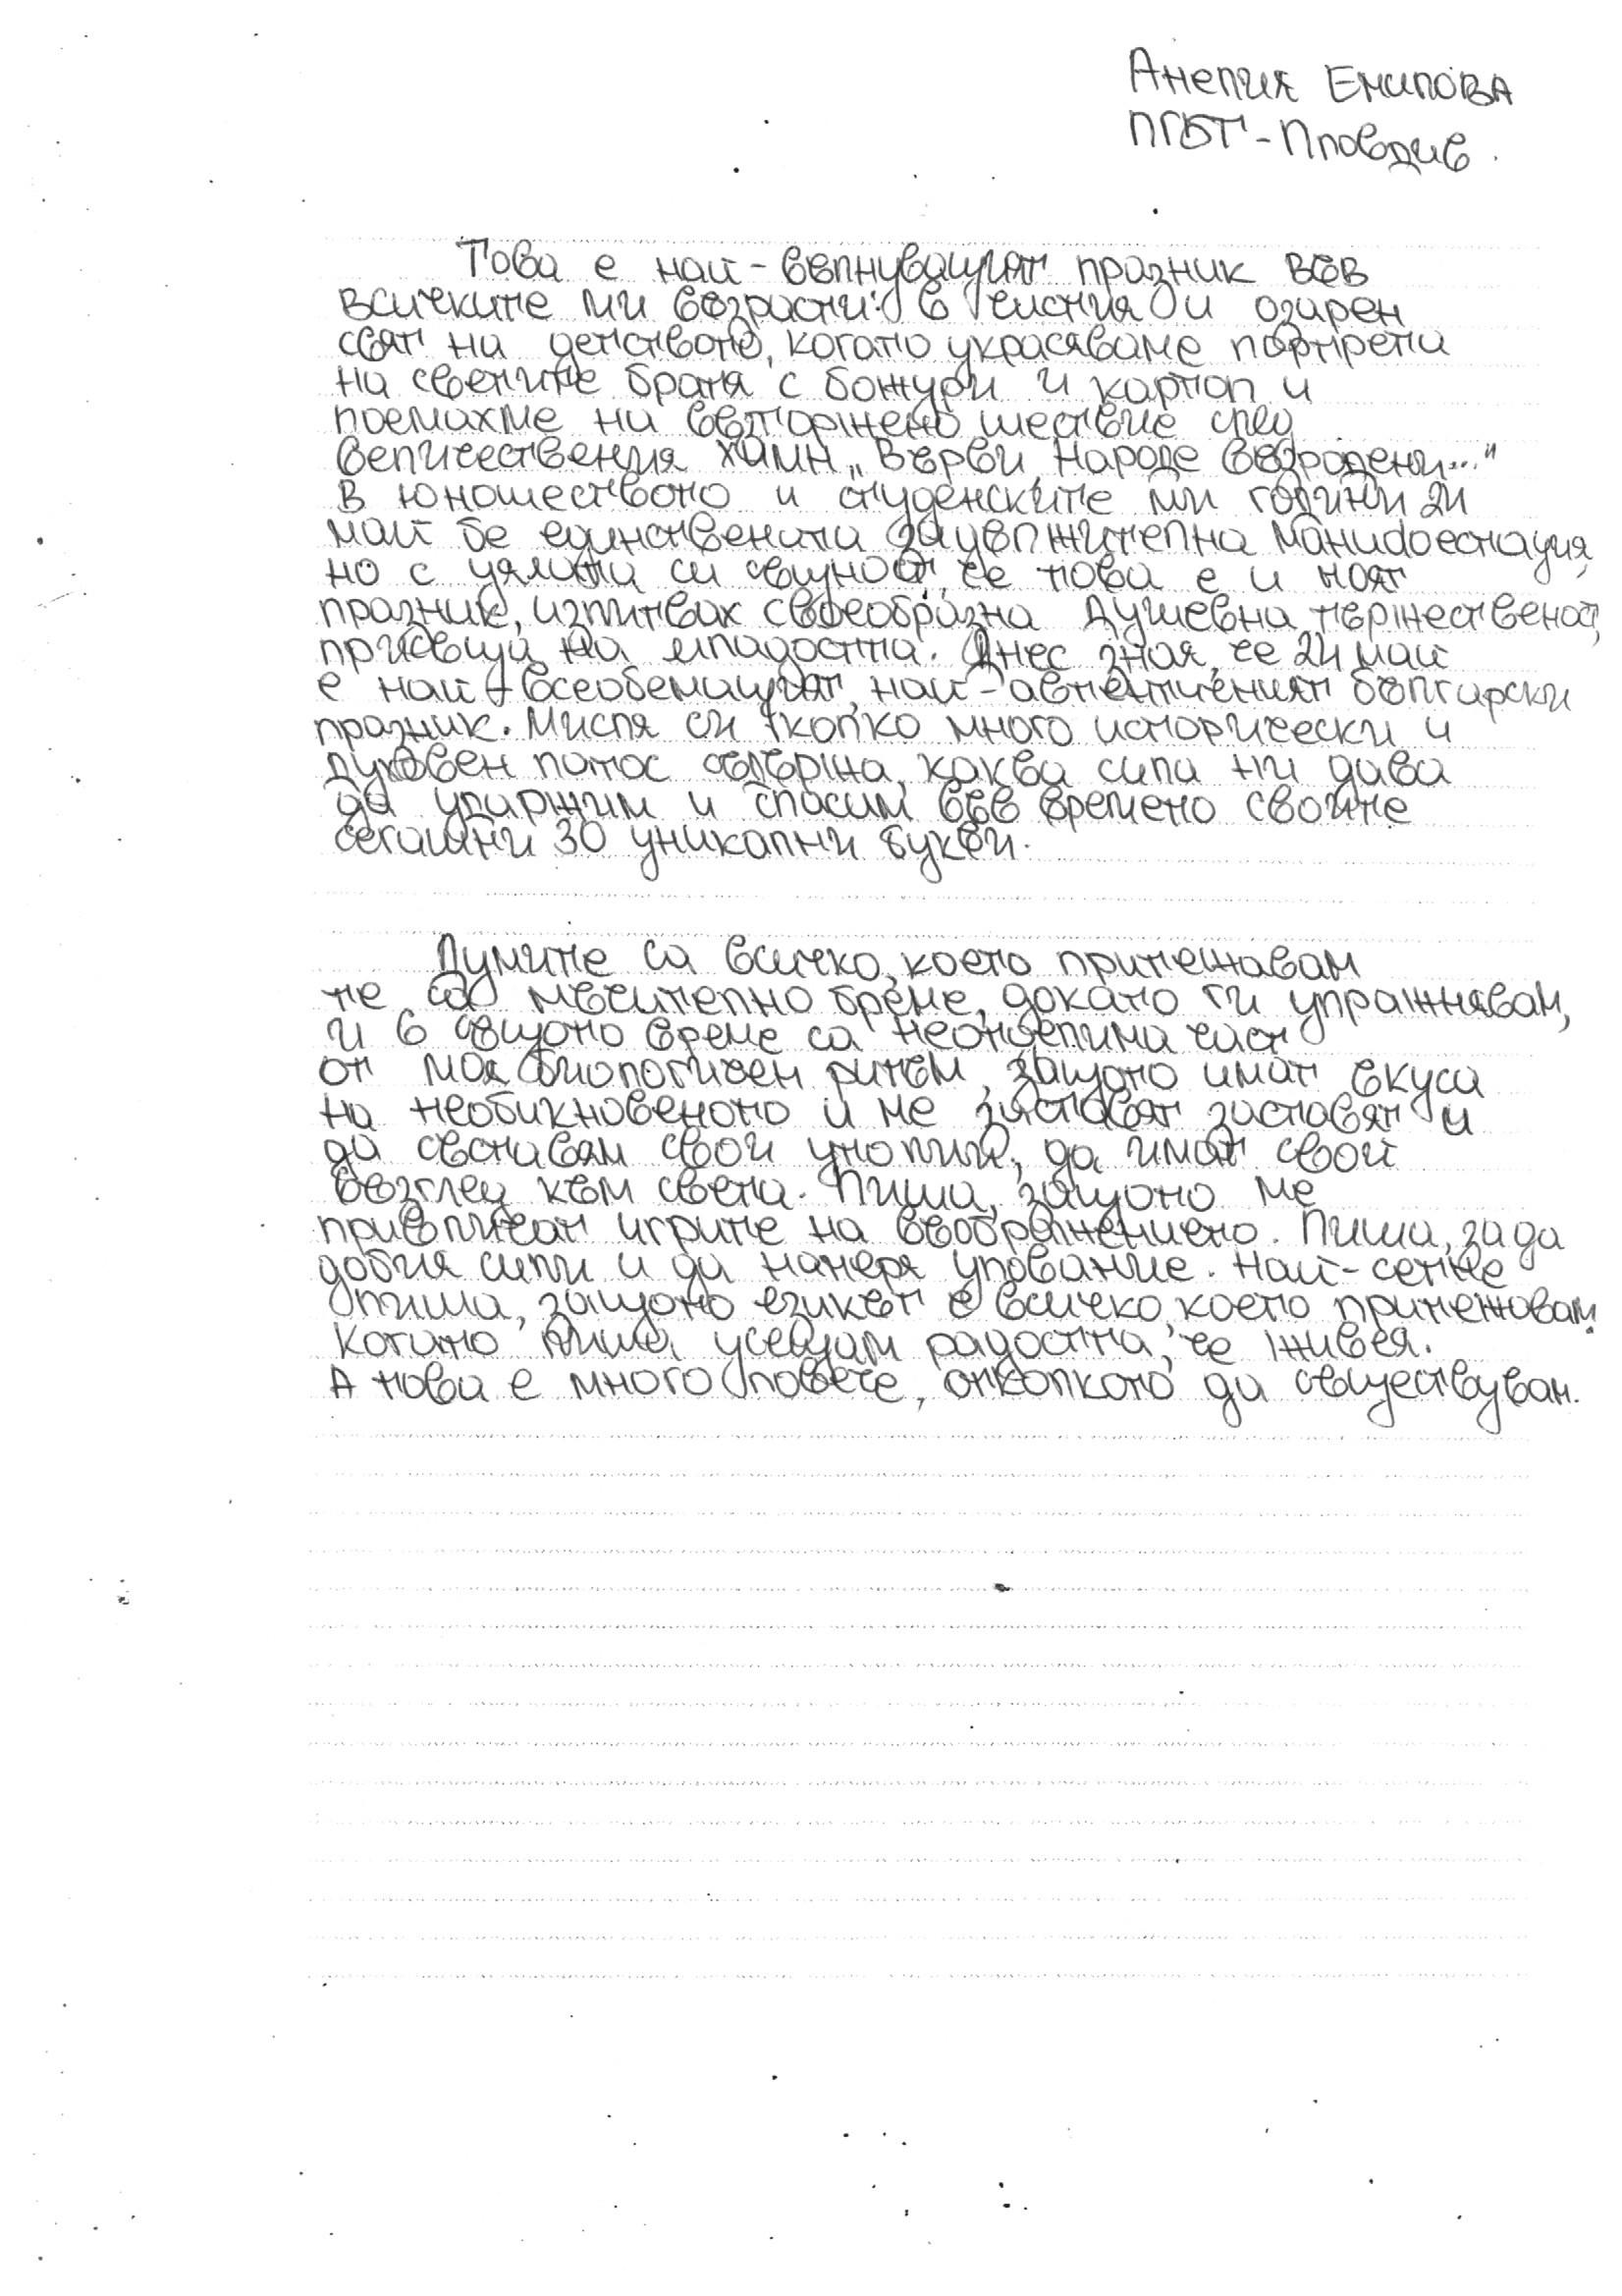 Анелия Емилова
ПГБТ - Пловдив.
Това е най-вълнуващият празник във
всичките ми възрасти: в чистия и озарен
свят на детството, когато украсяваме портрети
на светите братя с божури и картон и
поемахме на въторжено шествие след
величествения химн „Върви, Народе възродени..."
В юношеството и студенските ми години 24
май бе единствената задължителна манифестация,
но с цялата си същност, че това е и моят
празник, изпитвах своеобразна душевна тържественост,
присъща на младостта. Днес зная, че 24 май
е най-всеобемащият, най-автентичният български
празник. Мисля си колко много исторически и
духовен патос съдържа, каква сила ни дава
да удържим и спасим във времето своите
сегашни 30 уникални букви.
Думите са всичко, което притежавам
те са мъчително бреме, докато ги упражнявам,
и в същото време са неотделима част
от моя биологичен ритъм, защото имат вкуса
на необикновеното и ме заставят заставят и
да съставям свои утопии, да имат свой
възглед към света. Пиша, защото ме
привличат игрите на въображението. Пиша, за да
добия сили и да намеря упование. Най-сетне
пиша, защото езикът е всичко, което притежавам.
Когато пиша, усещам радостта, че живея.
А това е много повече, отколкото да съществувам.